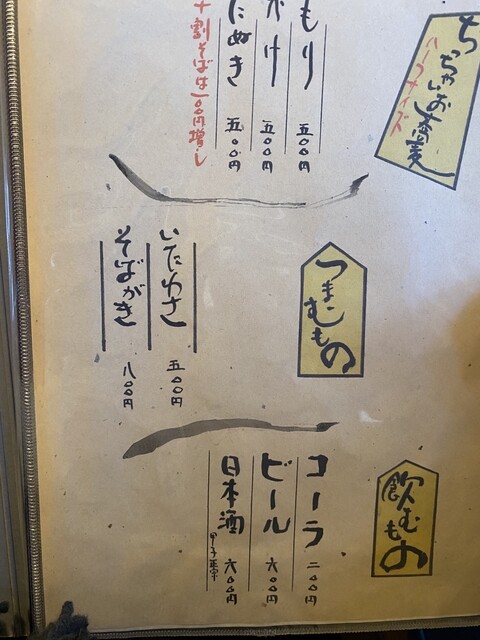 ちっちゃいお蕎麦
ハーフサイズ
もり 五〇〇円
かけ 五〇〇円
たぬき 五〇〇円
十割そばは一〇〇円増し
つまむもの
いたわさ 五〇〇円
そばがき 八〇〇円
飲むもの
コーラ 二〇〇円
ビール 六〇〇円
日本酒 六〇〇円
甲子正宗